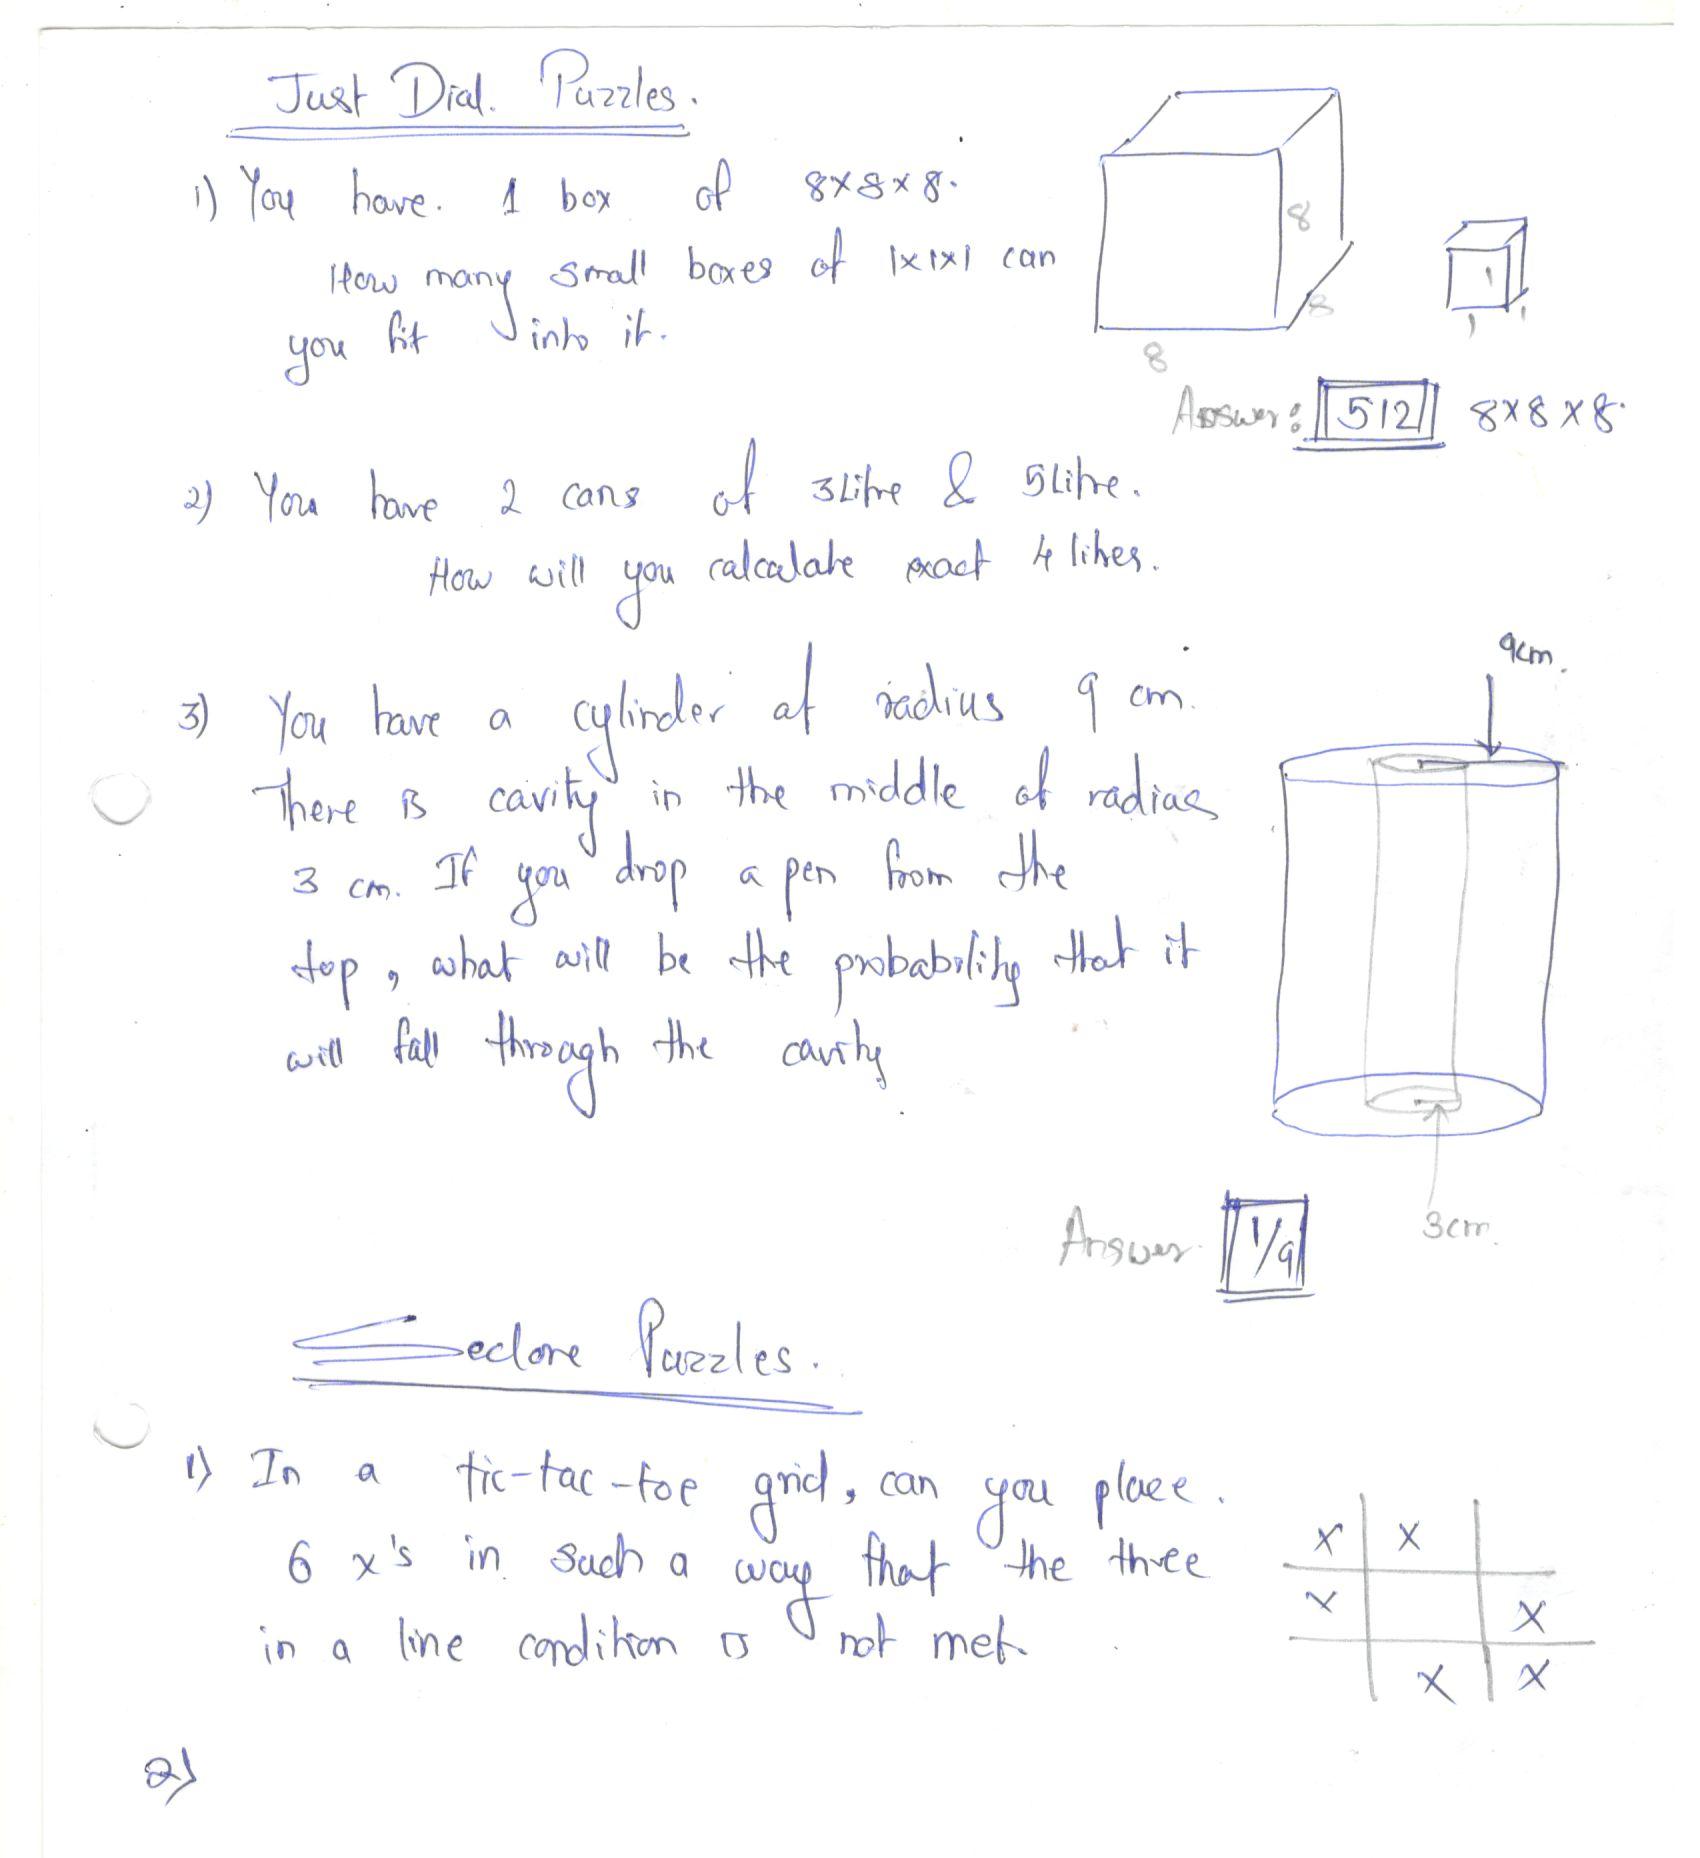 Just Dial. Puzzles.
1) You have. 1 box of 8x8x8.
How many small boxes of 1x1x1 can
you fit into it.
8
8
8
1
1
1
Answer: 512 8x8x8.
2) You have 2 cans of 3Litre & 5Litre.
How will you calculate exact 4 litres.
3) You have a cylinder of radius 9 cm.
There is cavity in the middle of radius
3 cm. If you drop a pen from the
top, what will be the probability that it
will fall through the cavity
9cm.
3cm.
Answer 1/9
Seclore Puzzles.
1) In a tic-tac-toe grid, can you place.
6 x's in such a way that the three
in a line condition is not met.
X X
X X
X X
2)